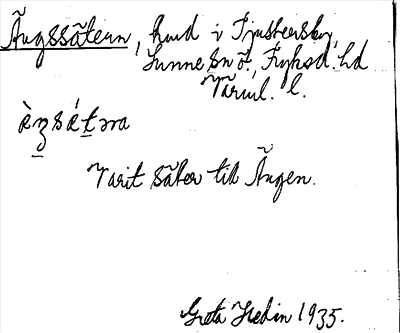 Ängssätern, hmd i Tjustersby,
Sunne sn ö., Fryksd. hd
Värml. l.
Varit säter till Ängen.
Greta Hedin 1935.